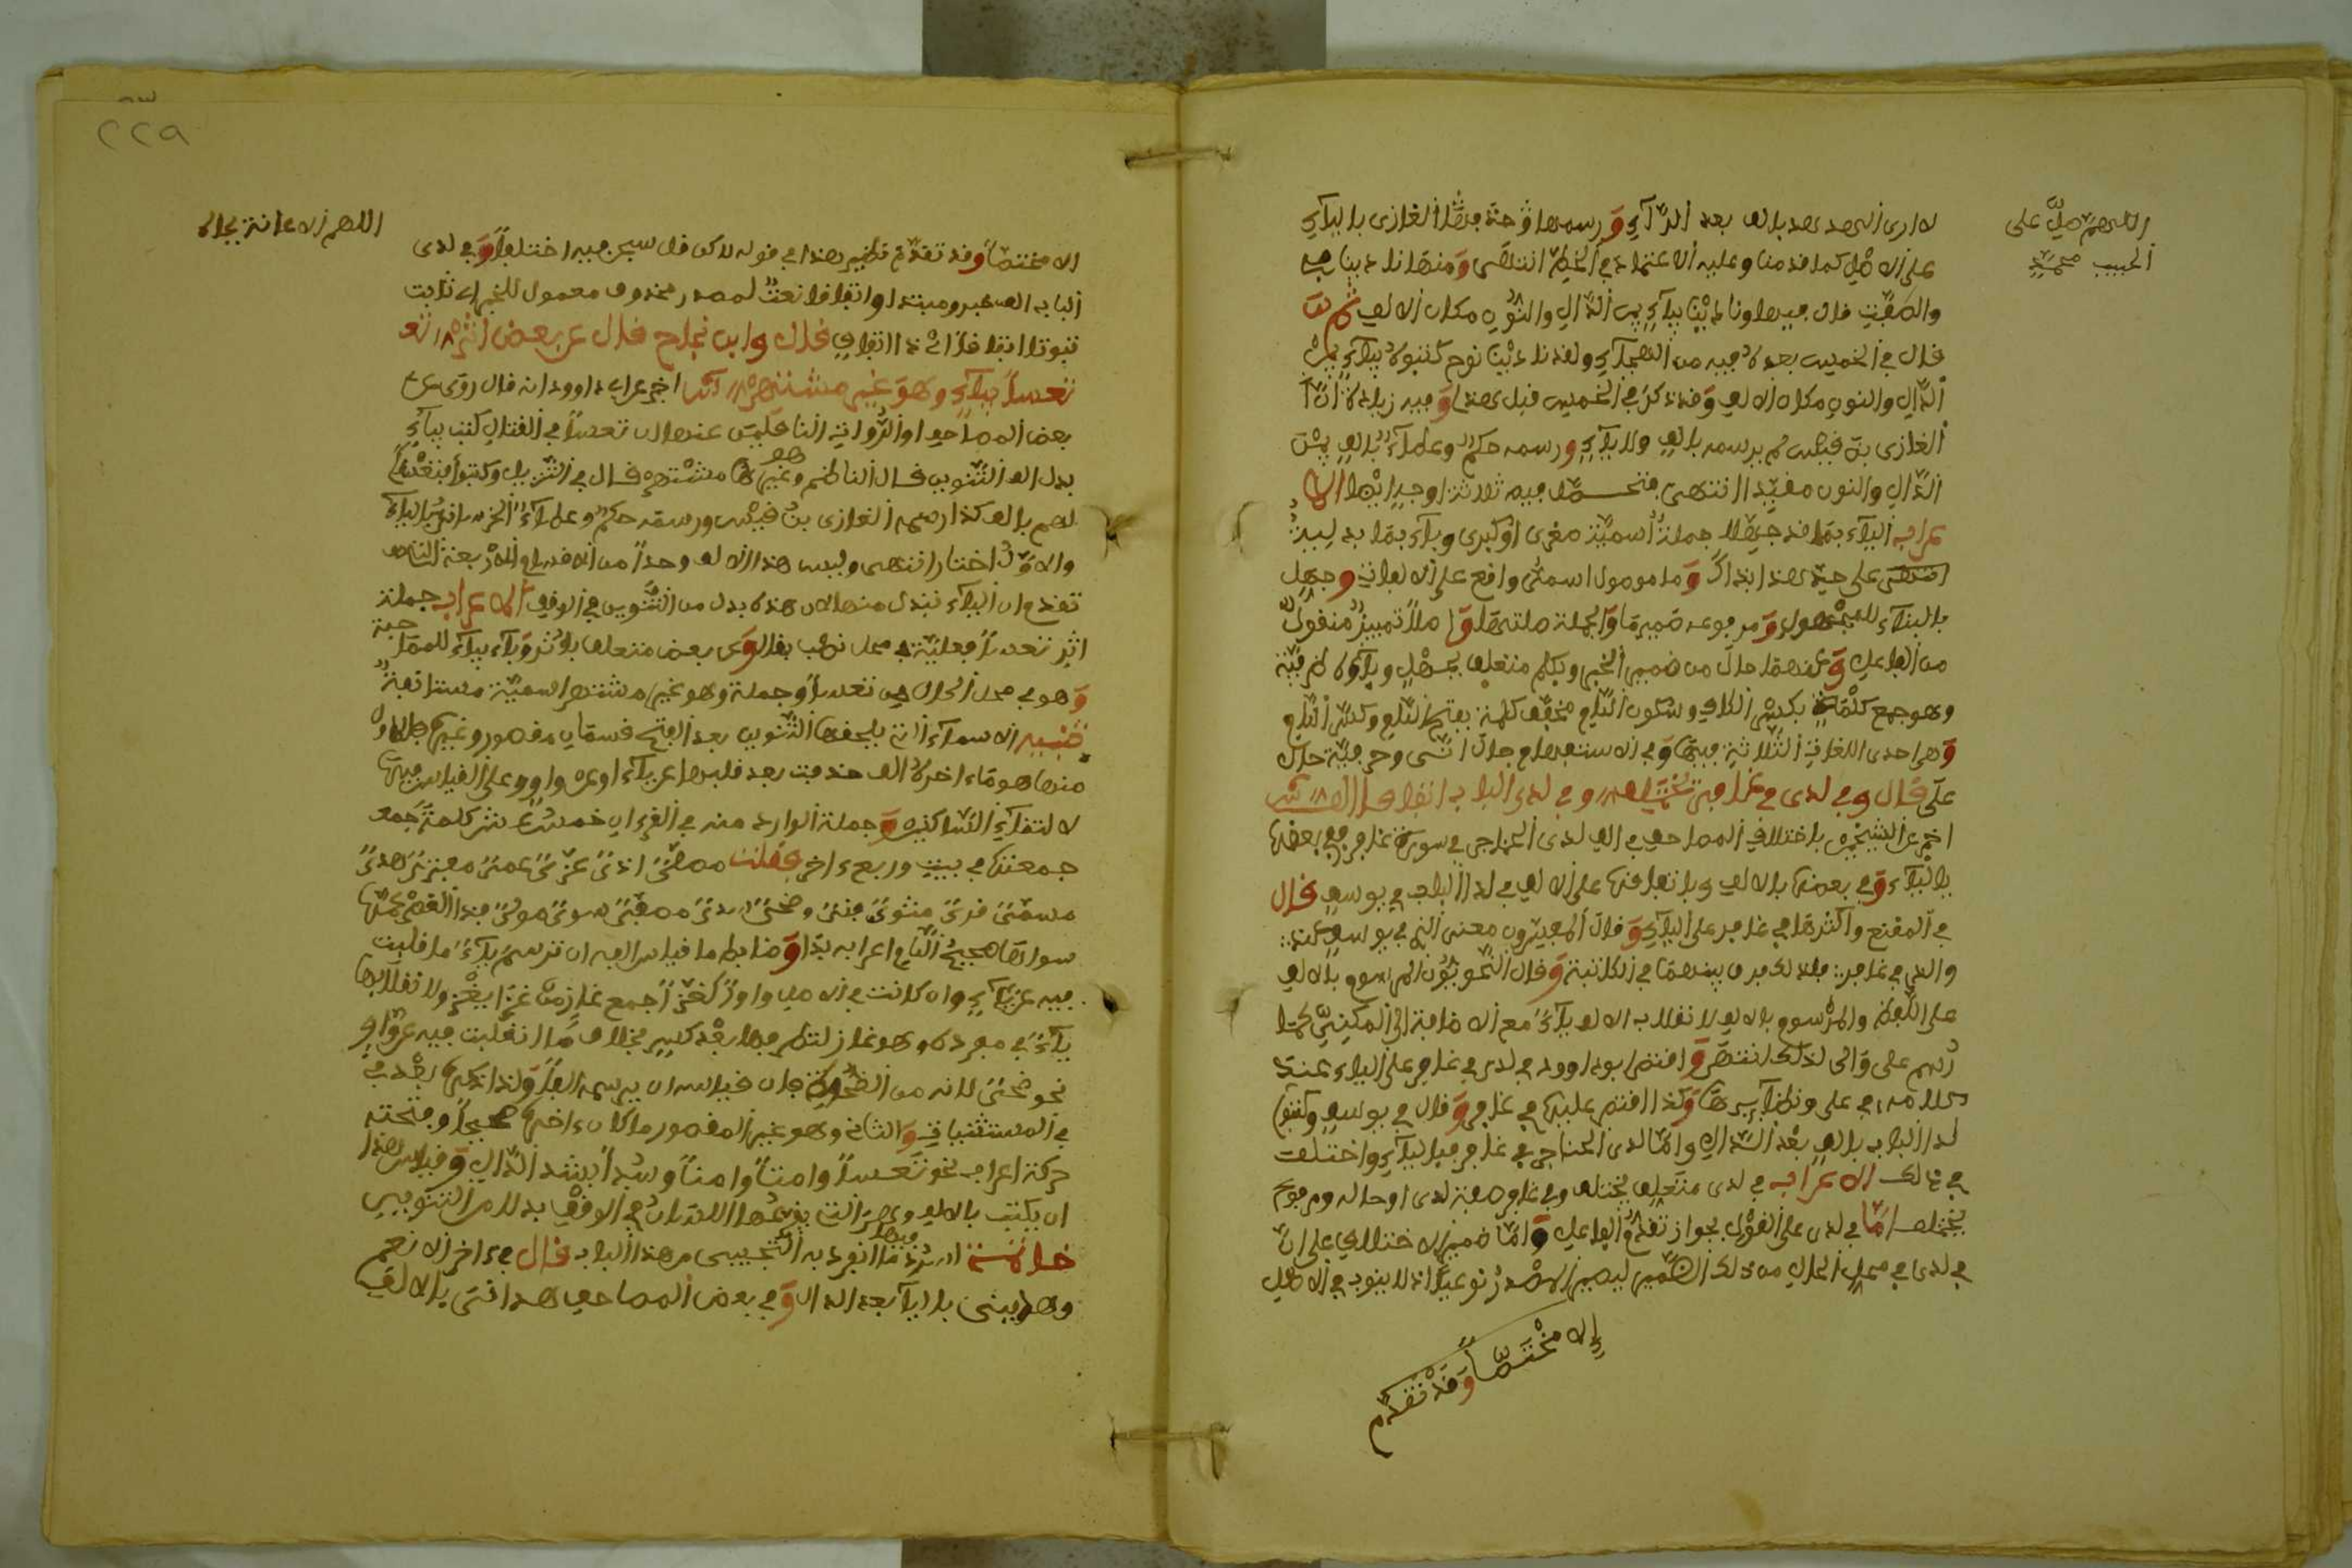 اللهم صل على
الحبيب محمد
لا ارى الهدهد بالف بعد الرآء ورسمها وحذفها الغازى باليآء
على الاصل كما قدمنا وعليه الاعتماد في الخط انتهى ومنها نادينا في
والصفت قال فيها ونادينا بيآء بين الدال والنون مكان الالف ثم
قال في الخميس بعده فيه من الهجآء ولقد نادينا نوح كتبوه بيآء بين
الدال والنون مكان الالف وقد ذكر في الخميس قبل هذا وفيه زيادة ان
الغازى بن قيس لم يرسمه بالف ولا بيآء ورسمه حكم وعطآء بالف بين
الدال والنون مقيدا انتهى فتحصل فيه ثلاثة اوجه ايضا الا
عراب اليآء بما قد جهلا جملة اسمية صغرى او كبرى وبآء بما بدلية
على حد هذا بذاك وما موصول اسمى واقع على الالفات وجهل
بالبنآء للمجهول ومرفوعه ضمير ما والجملة صلتها واصلا تمييز منقول
من الفاعل وعنهما حال من ضمير الخبر وبكلم متعلق بجهل وبآؤه ظرفية
وهو جمع كلمة بكسر الكاف وسكون اللام مخفف كلمة بفتح الكاف وكسر اللام
وهى احدى اللغات الثلاثة فيها وفي الاستفهام حال انى وحرفية حال
على قال وفي لدى في غافر يختلف وفي لدا الباب اتفاقا الف
اخبر عن الشيخين باختلاف المصاحف في الف لدى الحناجر في سورة غافر ففي بعضها
باليآء وفي بعضها بالالف وباتفاقها على الالف في لدا الباب في يوسف قال
في المقنع واكثرها في غافر على اليآء وقال المفسرون معنى الذى في يوسف عند
والذى في غافر في فلذلك فرق بينهما في الكتابة وقال النحويون المرسوم بالالف
على اللفظ والمرسوم بالالف لانقلاب الالف يآء مع الاضافة الى المكنى كما
رسم على والى لذلك انتهى واقتصر ابو داوود في لدى في غافر على اليآء عند
كلامه في على ونظآئرها وكذا اقتصر عليها في غافر وقال في يوسف وكتبوا
لدا الباب بالف بعد الدال واما لدى الحناجر في غافر فباليآء واختلفت
في ذلك الاعراب في لدى متعلق يختلف وفي غافر صفة لدى او حاله ومرفوع
يختلف اما في لدى على القول بجواز تقدم الفاعل واما ضمير الاختلاف على ان
في لدى في محل الحال من ذلك الضمير ليصير المصدر نوعيا اذ لا ينوب في الاصل
إلا مختصا وقد تقدم
٢٢٩
اللهم الاعانة بجاه
الا مختصا وقد تقدم نظير هذا في قوله لاكن قل سبحن فيه اختلفا وفي لدى
الباب الف خبر ومبتدا واتفاقا نعت لمصدر محذوف معمول للخبر اى ثابت
ثبوتا اتفاقا اى ذا اتفاق قال وابن نجاح قال عن بعض اثر
تعسا بيآء وهو غير مشتهر اخبر عن ابى داوود انه قال روى عن
بعض المصاحف او الرواية الناقلين عنها ان تعسا في القتال كتب بيآء
بدل الف التنوين قال الناظم وهو غير مشتهر قال في التنزيل وكتبوا فتعسا
لهم بالف كذا رسمه الغازى بن قيس ورسمه حكم وعطآء الخراسانى باليآء
والاول اختار انتهى وليس هذا الالف وحدا من الاقسام الاربعة التى
تقدم ان اليآء تبدل منها لان هذه بدل من التنوين في الوقف الاعراب جملة
اثر تعسا فعلية في محل نصب بقال وعن بعض متعلق باثر وبآء بيآء للمصاحبة
وهو في محل الحال من تعسا وجملة وهو غير مشتهر اسمية مستانفة
تنبيه الاسمآء التى يلحقها التنوين بعد الفتح قسمان مقصور وغيره فالاول
منها هو ما ءاخره الف حذفت بعد قلبها عن يآء او عن واو على القياس فيها
لالتقآء الساكنين وجملة الوارد منه في القرءان خمس عشر كلمة جمعـ
جمعتها في بيت وربع ءاخر فقلت مصلى اذى عزى عمى مفترى هدى
مسمى قرى مثوى فتى وضحى سدى مصفى سوى مولى فذا القصر عمها
سواها صحيح اللام اعرابه بدا وضابط ما قياس الفه ان ترسم يآء ما قلبت
فيه عن يآء وان كانت في الاصل واوا كغزا جمع غاز من غزا يغزو لانقلابها
يآء في مفرده وهو غاز لتطرفها بعد كسر بخلاف ما انقلبت فيه عن واو
نحو ضحى لانه من الضحوة فان قياسه ان يرسم الفا ولذا ذكرها بعد في
في المستثنيات والثانى وهو غير المقصور ما كان ءاخره صحيحا وفتحته
حركة اعراب نحو تعسا وامتا وامنا وسدا بشد الدال وقياس هذا
ان يكتب بالالف وهى التى يقع عليها اللسان في الوقف بدلا من التنوين
خاتمة انفرد به التجيبى من هذا الباب قال في ءاخر الانعم
وهدينى باليآ بعد الدال وفي بعض المصاحف هدانى بالالف